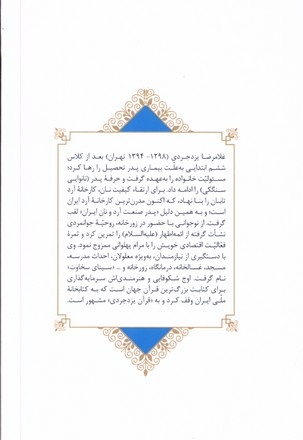 غلامرضا یزدجردی (۱۲۹۸- ۱۳۹۴ تهران) بعد از کلاس
ششم ابتدایی به‌علّت بیماری پدر تحصیل را رها کرد؛
مسئولیّت خانواده را به‌عهده گرفت و حرفهٔ پدر (نانوایی
سنگکی) را ادامه داد. برای ارتقاء کیفیت نان، کارخانهٔ آرد
تابان را بنا نهاد، که اکنون مدرن‌ترین کارخانهٔ آرد ایران
است؛ و به همین دلیل «پدر صنعت آرد و نان ایران» لقب
گرفت. از نوجوانی با حضور در زورخانه، روحیّهٔ جوانمردی
نشأت گرفته از ائمه‌اطهار (علیهم‌السلام) را تمرین کرد و ثمرهٔ
فعالیّت اقتصادی خویش را با مرام پهلوانی ممزوج نمود. وی
با دستگیری از نیازمندان، به‌ویژه معلولان، احداث مدرسه،
مسجد، غسالخانه، درمانگاه، زورخانه و ... «سینای سخاوت»
نام گرفت. اوج شکوفایی و هنرمندی‌اش سرمایه‌گذاری
برای کتابت بزرگ‌ترین قرآن جهان است که به کتابخانهٔ
ملّی ایران وقف کرد و به «قرآن یزدجردی» مشهور است.